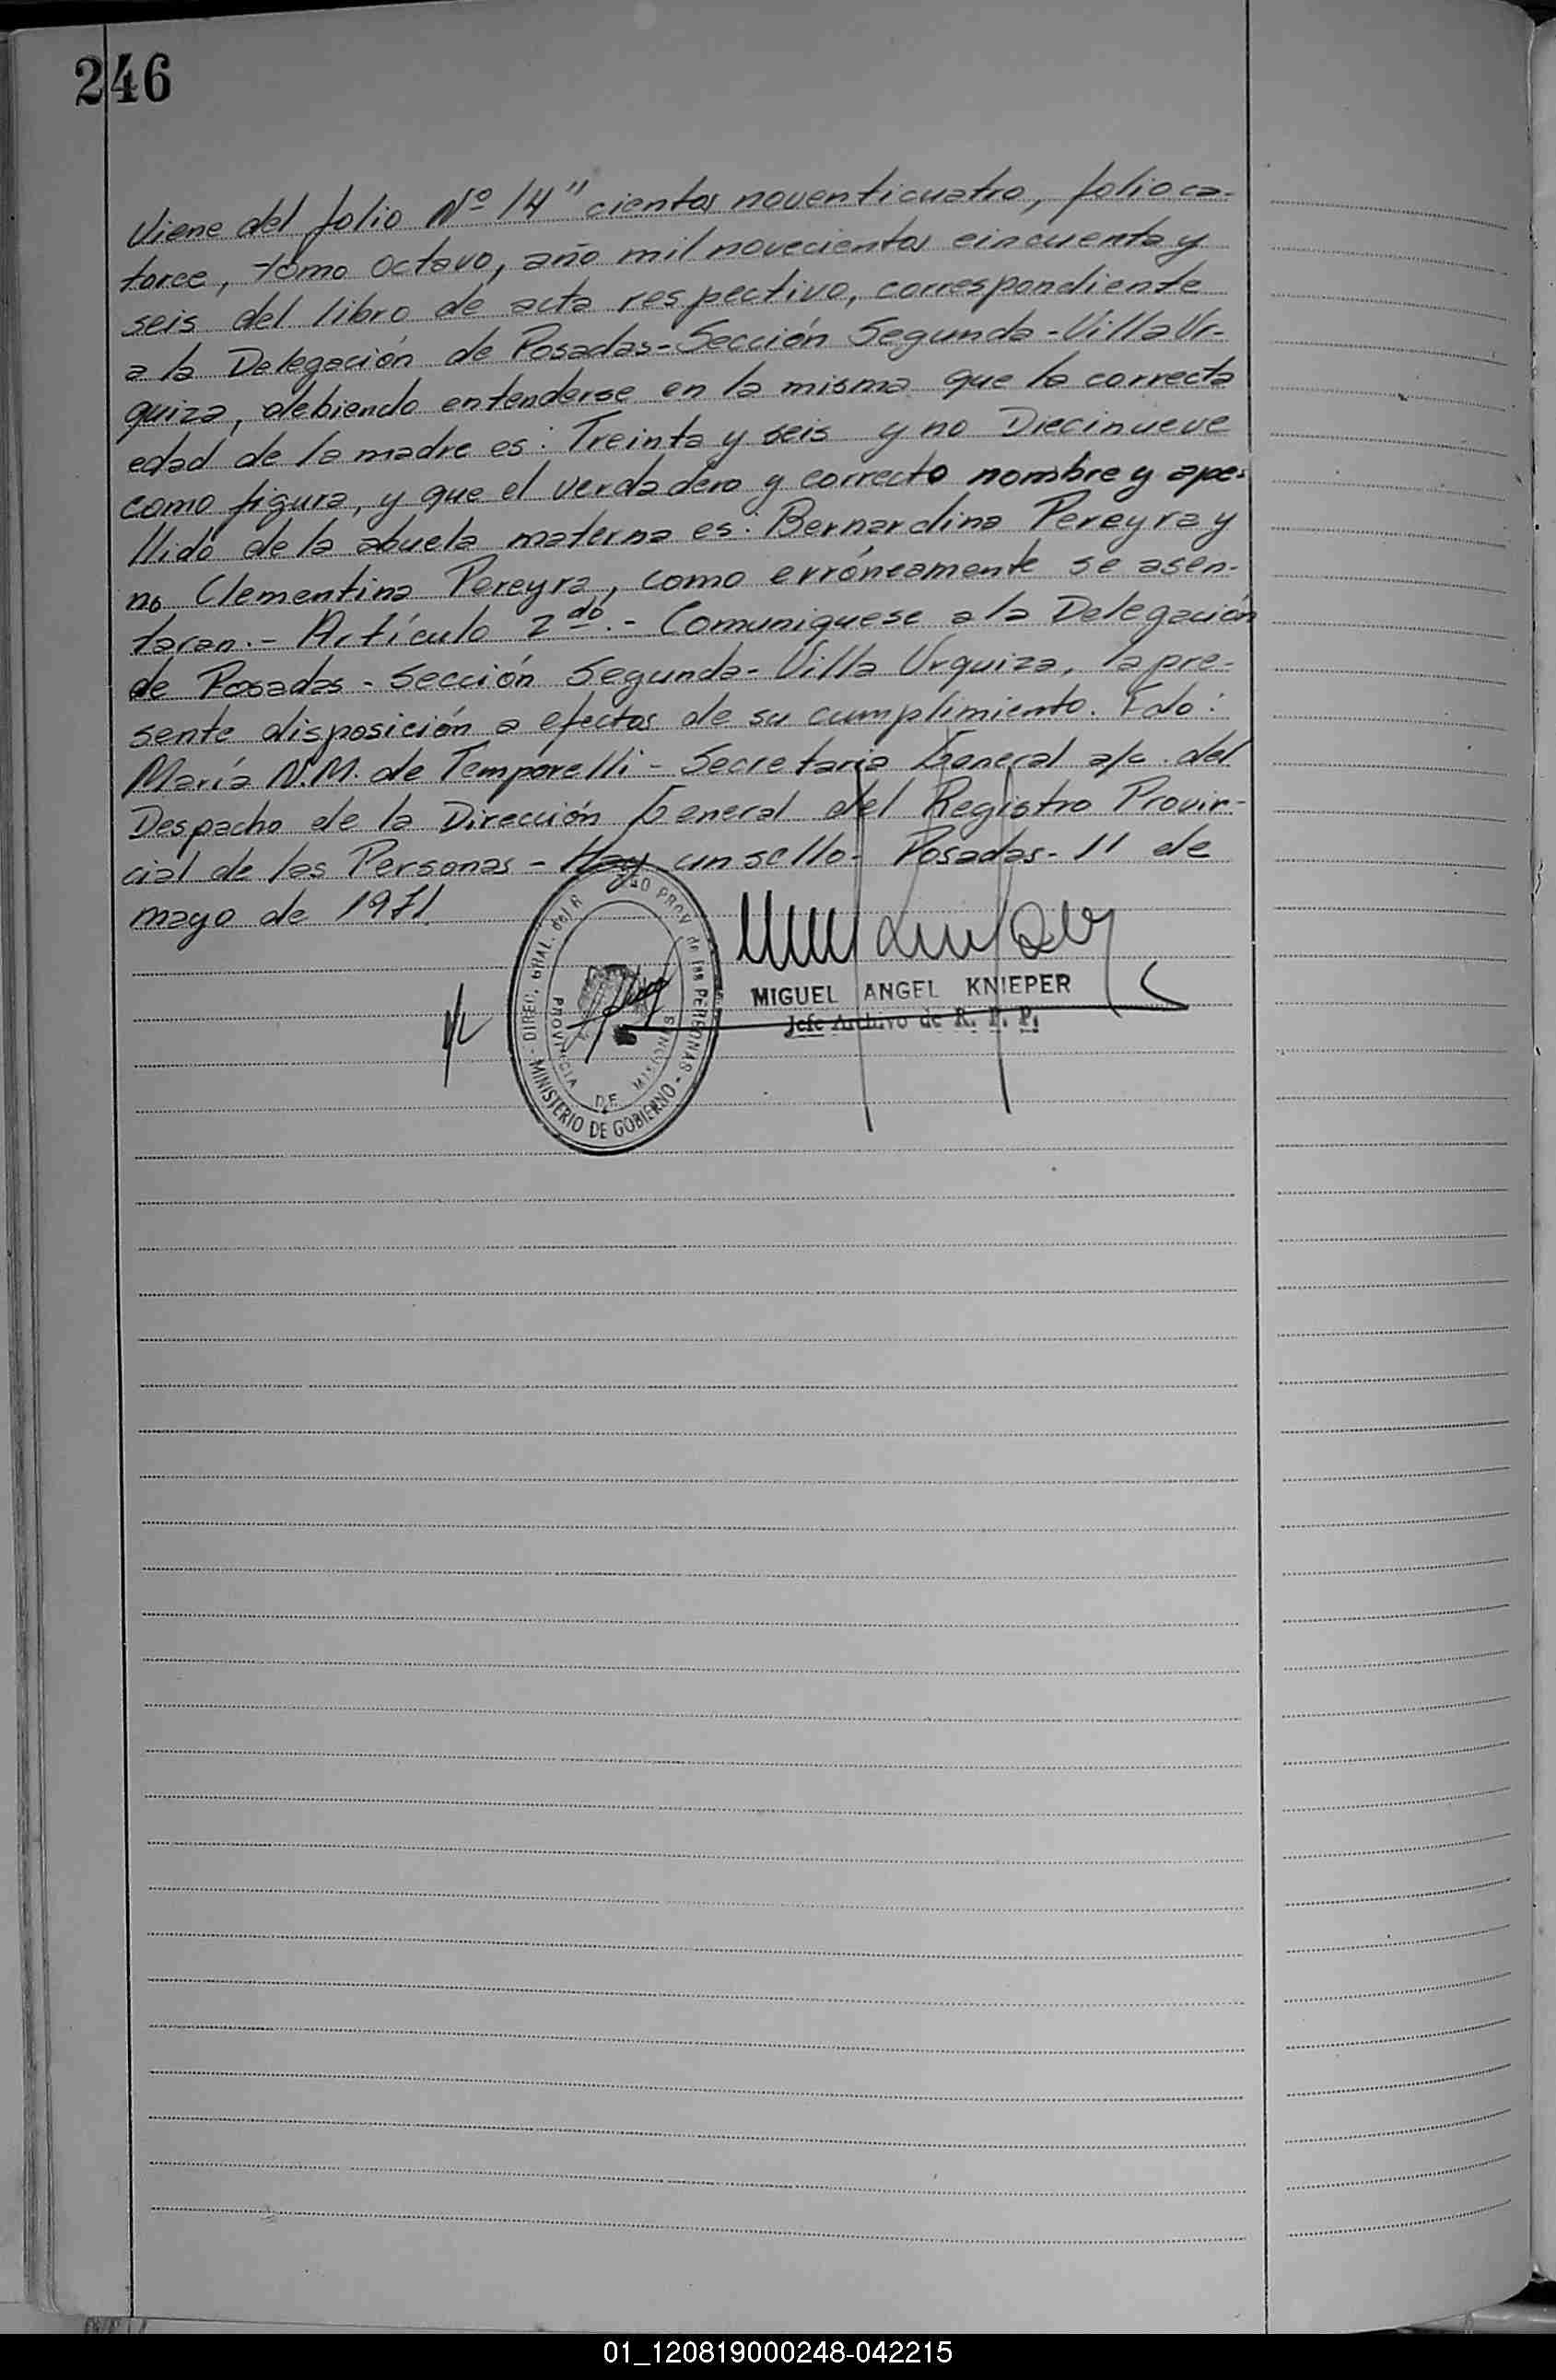 246
Viene del folio Nº 14" cientos noventicuatro, folio ca-
torce, tomo octavo, año mil novecientos cincuenta y
seis del libro de acta respectivo, correspondiente
a la Delegación de Posadas-Sección Segunda-Villa Ur-
quiza, debiendo entenderse en la misma que la correcta
edad de la madre es: Treinta y seis y no Diecinueve
como figura, y que el verdadero y correcto nombre y ape-
llido de la abuela materna es: Bernardina Pereyra y
no Clementina Pereyra, como erróneamente se asen-
taran.- Artículo 2do.- Comuniquese a la Delegación
de Posadas-Sección Segunda-Villa Urquiza, la pre-
sente disposición a efectos de su cumplimiento. Fdo:
María N.M. de Temporelli - Secretaria General a/c. del
Despacho de la Dirección General del Registro Provin-
cial de las Personas - Hay un sello- Posadas- 11 de
mayo de 1971
DIREC. GRAL. del R SO PROV de las PERSONAS -
MINISTERIO DE GOBIERNO
PROVINCIA DE MISIONES
MIGUEL ANGEL KNIEPER
Jefe Archivo de R. P. P.
01_120819000248-042215